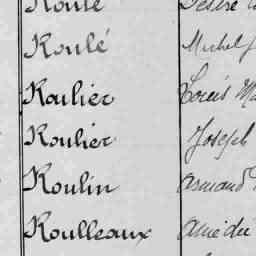 Roulé
Roulé Michel
Roulier Louis
Roulier Joseph
Roulin Armand
Roulleaux Amédée